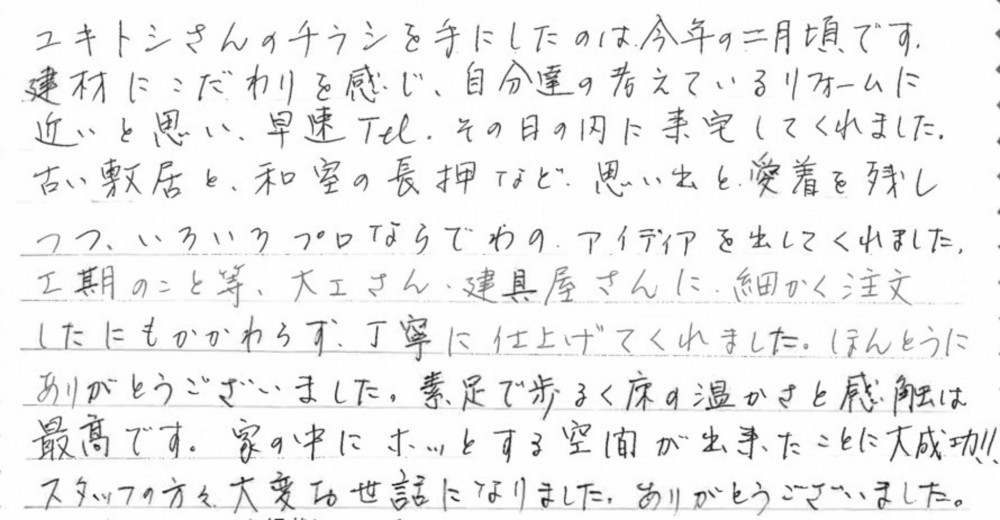 ユキトシさんのチラシを手にしたのは、今年の二月頃です。
建材にこだわりを感じ、自分達の考えているリフォームに
近いと思い、早速Tel. その日の内に来宅してくれました。
古い敷居と、和室の長押など、思い出と愛着を残し
つつ、いろいろプロならでわの、アイディアを出してくれました。
工期のこと等、大工さん、建具屋さんに、細かく注文
したにもかかわらず、丁寧に仕上げてくれました。ほんとうに
ありがとうございました。素足で歩るく床の温かさと感触は
最高です。家の中にホッとする空間が出来たことに大成功!!
スタッフの方々、大変お世話になりました。ありがとうございました。